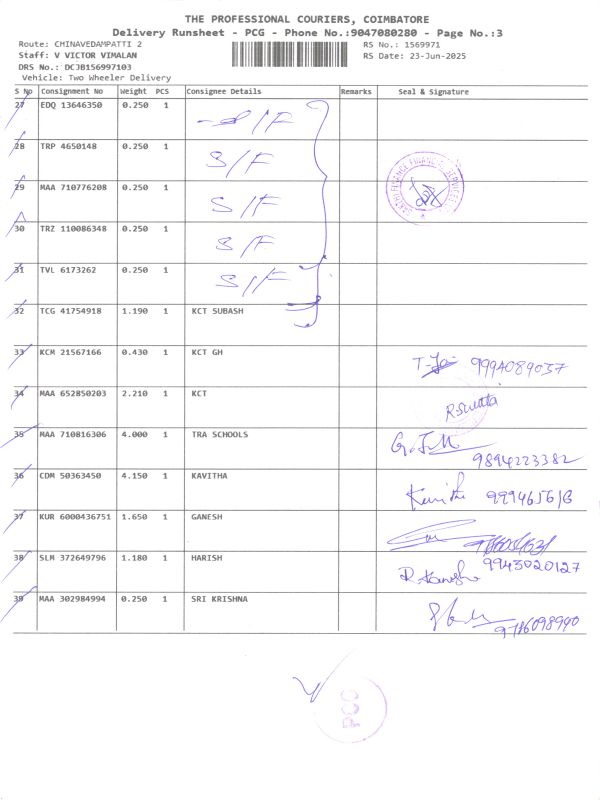 THE PROFESSIONAL COURIERS, COIMBATORE
Delivery Runsheet - PCG - Phone No.:9047080280 - Page No.:3
Route: CHINAVEDAMPATTI 2 RS No.: 1569971
Staff: V VICTOR VIMALAN RS Date: 23-Jun-2025
DRS No.: DCJB156997103
Vehicle: Two Wheeler Delivery
S No Consignment No Weight PCS Consignee Details Remarks Seal & Signature
27 EDQ 13646350 0.250 1 S/F
28 TRP 4650148 0.250 1 S/F
29 MAA 710776208 0.250 1 S/F
30 TRZ 110086348 0.250 1 S/F
31 TVL 6173262 0.250 1 S/F
32 TCG 41754918 1.190 1 KCT SUBASH
33 KCM 21567166 0.430 1 KCT GH 9994089037
34 MAA 652850203 2.210 1 KCT R.Swetta
35 MAA 710816306 4.000 1 TRA SCHOOLS
9894223382
36 CDM 50363450 4.150 1 KAVITHA Kavitha
37 KUR 6000436751 1.650 1 GANESH
38 SLM 372649796 1.180 1 HARISH 9943020127
39 MAA 302984994 0.250 1 SRI KRISHNA
9716098990
PCG